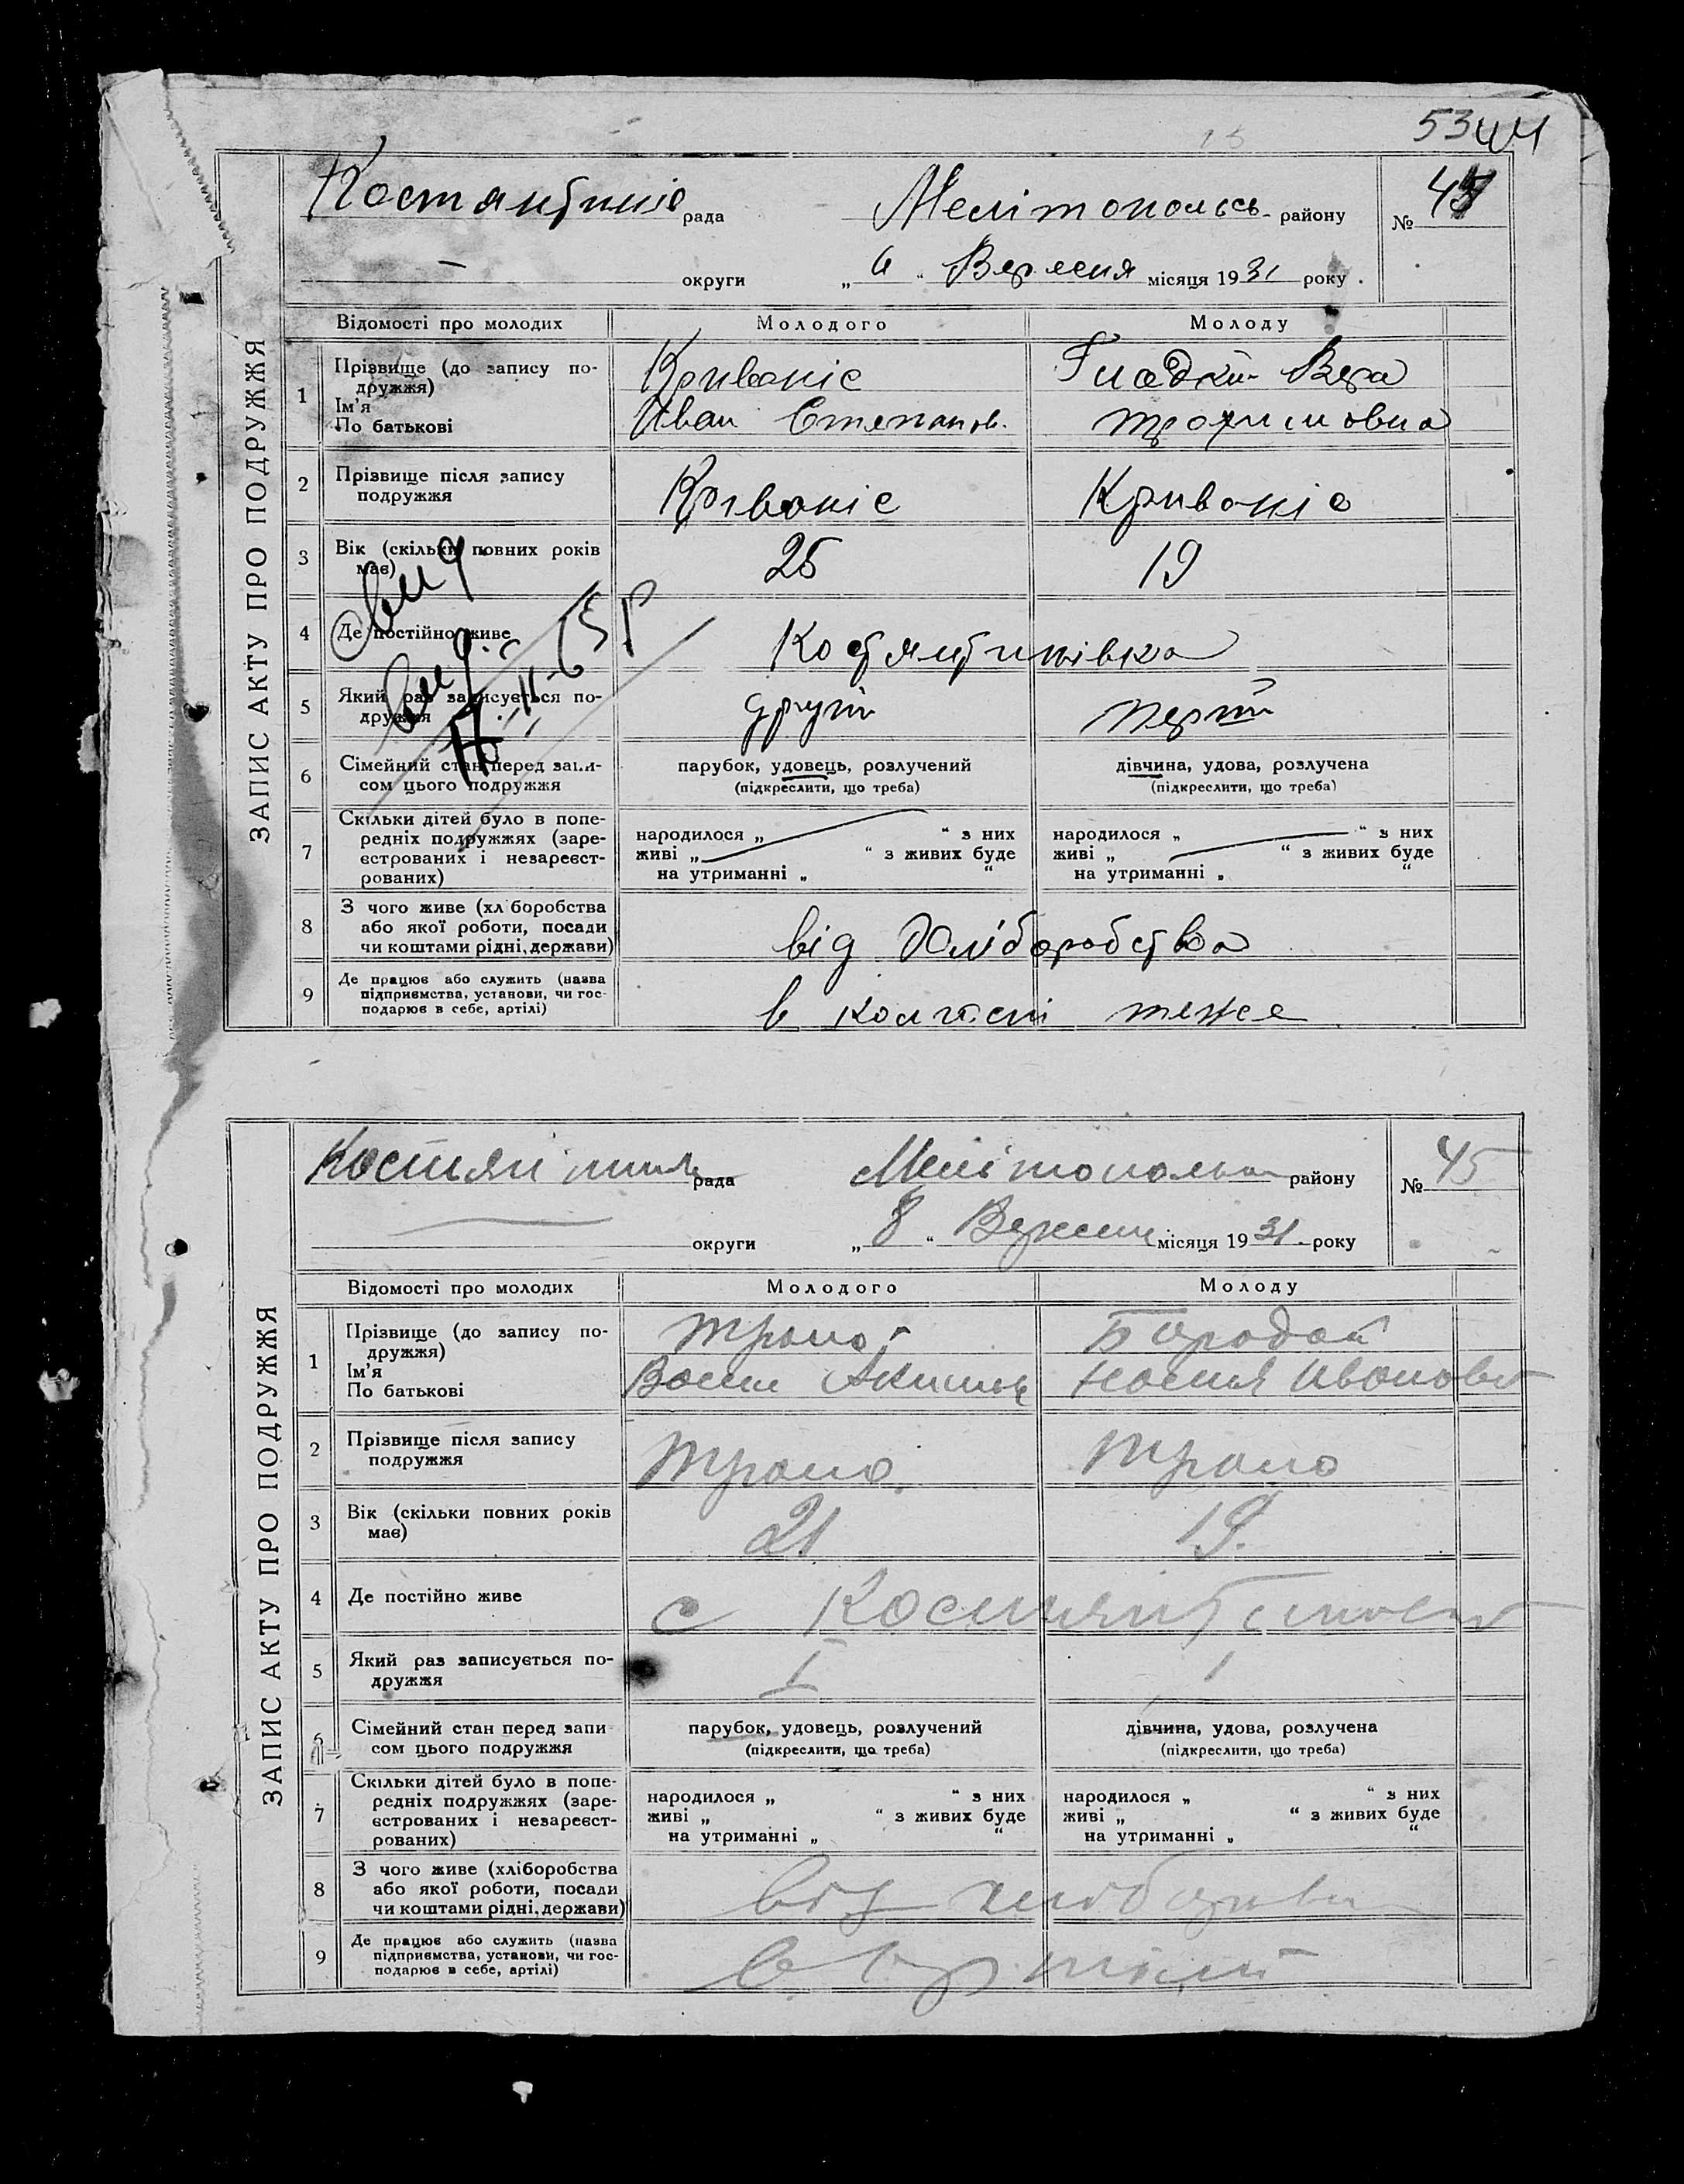 5344
Костянтинів рада Мелітопольсь району № 44
— округи „ 6 “ Вересня місяця 1931 року
ЗАПИС АКТУ ПРО ПОДРУЖЖЯ
Відомості про молодих Молодого Молоду
1 Прізвище (до запису по-
дружжя)
Ім'я
По батькові
Кривоніс
Иван Степанов.
Гладкий Вера
Трохимовна
2 Прізвище після запису
подружжя
Кривоніс Кривоніс
3 Вік (скільки повних років
має)
25 19
4 Де постійно живе
Костянтинівка
5 Який раз записується по-
дружжя
другий перший
6 Сімейний стан перед запи-
сом цього подружжя
парубок, удовець, розлучений
(підкреслити, що треба)
дівчина, удова, розлучена
(підкреслити, що треба)
7 Скільки дітей було в попе-
редніх подружжях (заре-
єстрованих і незареєст-
рованих)
народилося „ “ з них
живі „ “ з живих буде
на утриманні „ “
народилося „ “ з них
живі „ “ з живих буде
на утриманні „ “
8 З чого живе (хліборобства
або якої роботи, посади
чи коштами рідні, держави)
від хліборобства
9 Де працює або служить (назва
підприємства, установи, чи гос-
подарює в себе, артілі)
в колгоспі
рада Мелітопольськ району № 45
округи „ 8 “ Вересня місяця 1931. року
ЗАПИС АКТУ ПРО ПОДРУЖЖЯ
Відомості про молодих Молодого Молоду
1 Прізвище (до запису по-
дружжя)
Ім'я
По батькові
Бородай
Ивановна
2 Прізвище після запису
подружжя
3 Вік (скільки повних років
має)
21 19.
4 Де постійно живе
с
5 Який раз записується по-
дружжя
I 1
6 Сімейний стан перед запи
сом цього подружжя
парубок, удовець, розлучений
(підкреслити, що треба)
дівчина, удова, розлучена
(підкреслити, що треба)
7 Скільки дітей було в попе-
редніх подружжях (заре-
єстрованих і незареєст-
рованих)
народилося „ “ з них
живі „ “ з живих буде
на утриманні „ “
народилося „ “ з них
живі „ “ з живих буде
на утриманні „ “
8 З чого живе (хліборобства
або якої роботи, посади
чи коштами рідні, держави)
від
9 Де працює або служить (назва
підприємства, установи, чи гос-
подарює в себе, артілі)
в артілі